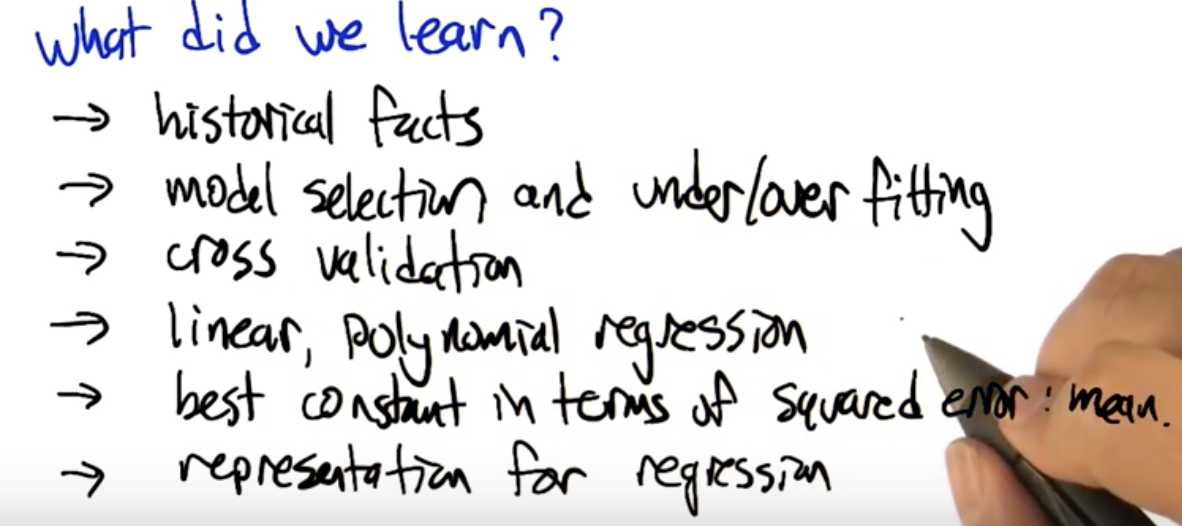 what did we learn?
→ historical facts
→ model selection and under/over fitting
→ cross validation
→ linear, polynomial regression
→ best constant in terms of squared error: mean.
→ representation for regression